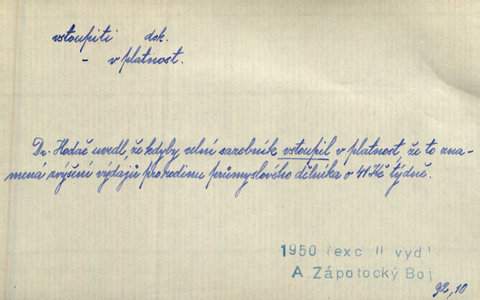 vstoupiti dok.
- v platnost.
Dr. Hodač uvedl, že kdyby celní sazebník vstoupil v platnost, že to zna-
mená zvýšení výdajů pro rodinu průmyslového dělníka o 41 Kč týdně.
1950 (exc. II vyd)
A. Zápotocký Boj
92,10